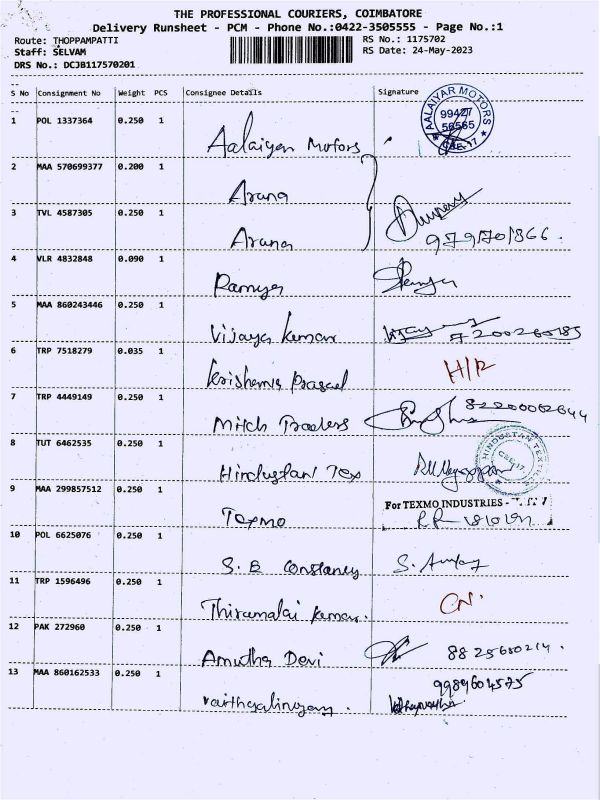 THE PROFESSIONAL COURIERS, COIMBATORE
Delivery Runsheet - PCM - Phone No.:0422-3505555 - Page No.:1
Route: THOPPAMPATTI
Staff: SELVAM
DRS No.: DCJB117570201
RS No.: 1175702
RS Date: 24-May-2023
S No Consignment No Weight PCS Consignee Details Signature
1 POL 1337364 0.250 1 Aalaiyan Motors AALAIYAR MOTORS 99427 CBE-17
2 MAA 570699377 0.200 1 Arana
3 TVL 4587305 0.250 1 Arana
4 VLR 4832848 0.090 1 Ramya
5 MAA 860243446 0.250 1 Vijaya Kumar 7200260185
6 TRP 7518279 0.035 1 Prasad H/R
7 TRP 4449149 0.250 1 Mitch Traders
8 TUT 6462535 0.250 1 Hindustan Tex HINDUSTAN CBE-17
9 MAA 299857512 0.250 1 Texmo For TEXMO INDUSTRIES -
10 POL 6625076 0.250 1 S. B
11 TRP 1596496 0.250 1 Thirumalai Kumar. CN.
12 PAK 272960 0.250 1 Amutha Devi
13 MAA 860162533 0.250 1 9989604575